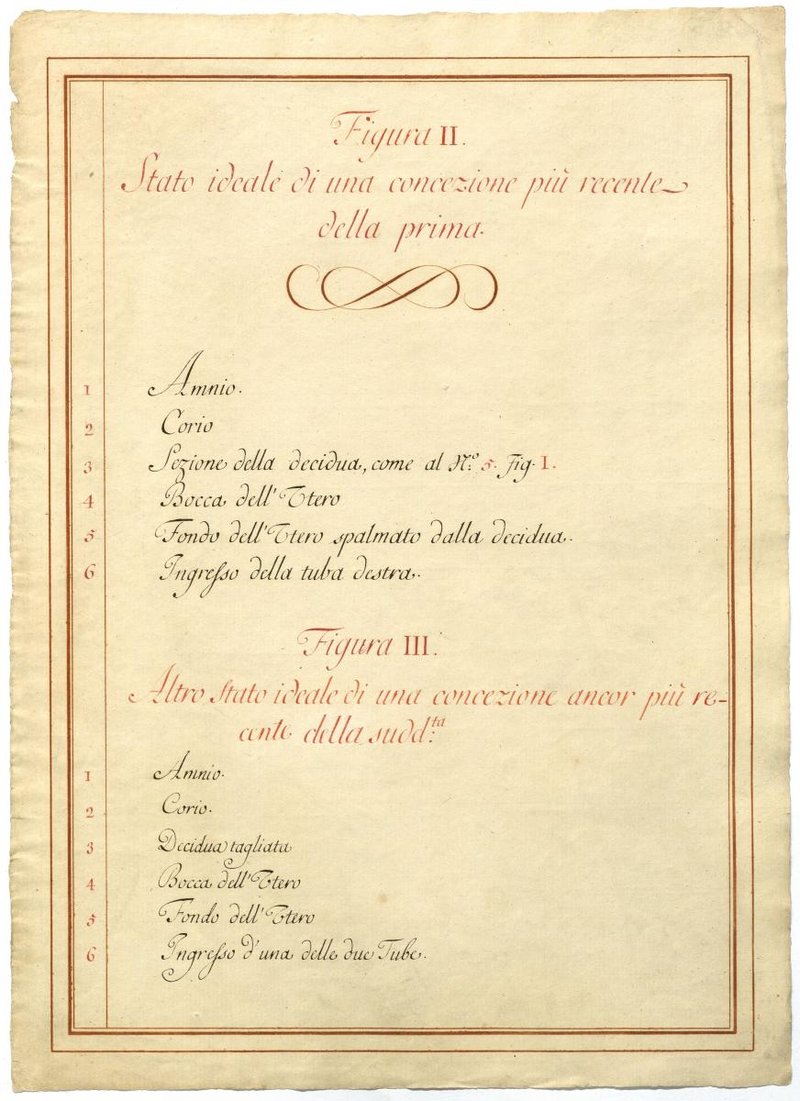 Figura II.
Stato ideale di una concezione più recente
della prima.
1 Amnio.
2 Corio
3 Sezione della decidua, come al N.º 5. Fig. I.
4 Bocca dell'Utero
5 Fondo dell'Utero spalmato dalla decidua.
6 Ingresso della tuba destra.
Figura III.
Altro stato ideale di una concezione ancor più re-
cente della sudd.ta
1 Amnio.
2 Corio.
3 Decidua tagliata
4 Bocca dell'Utero
5 Fondo dell'Utero
6 Ingresso d'una delle due Tube.